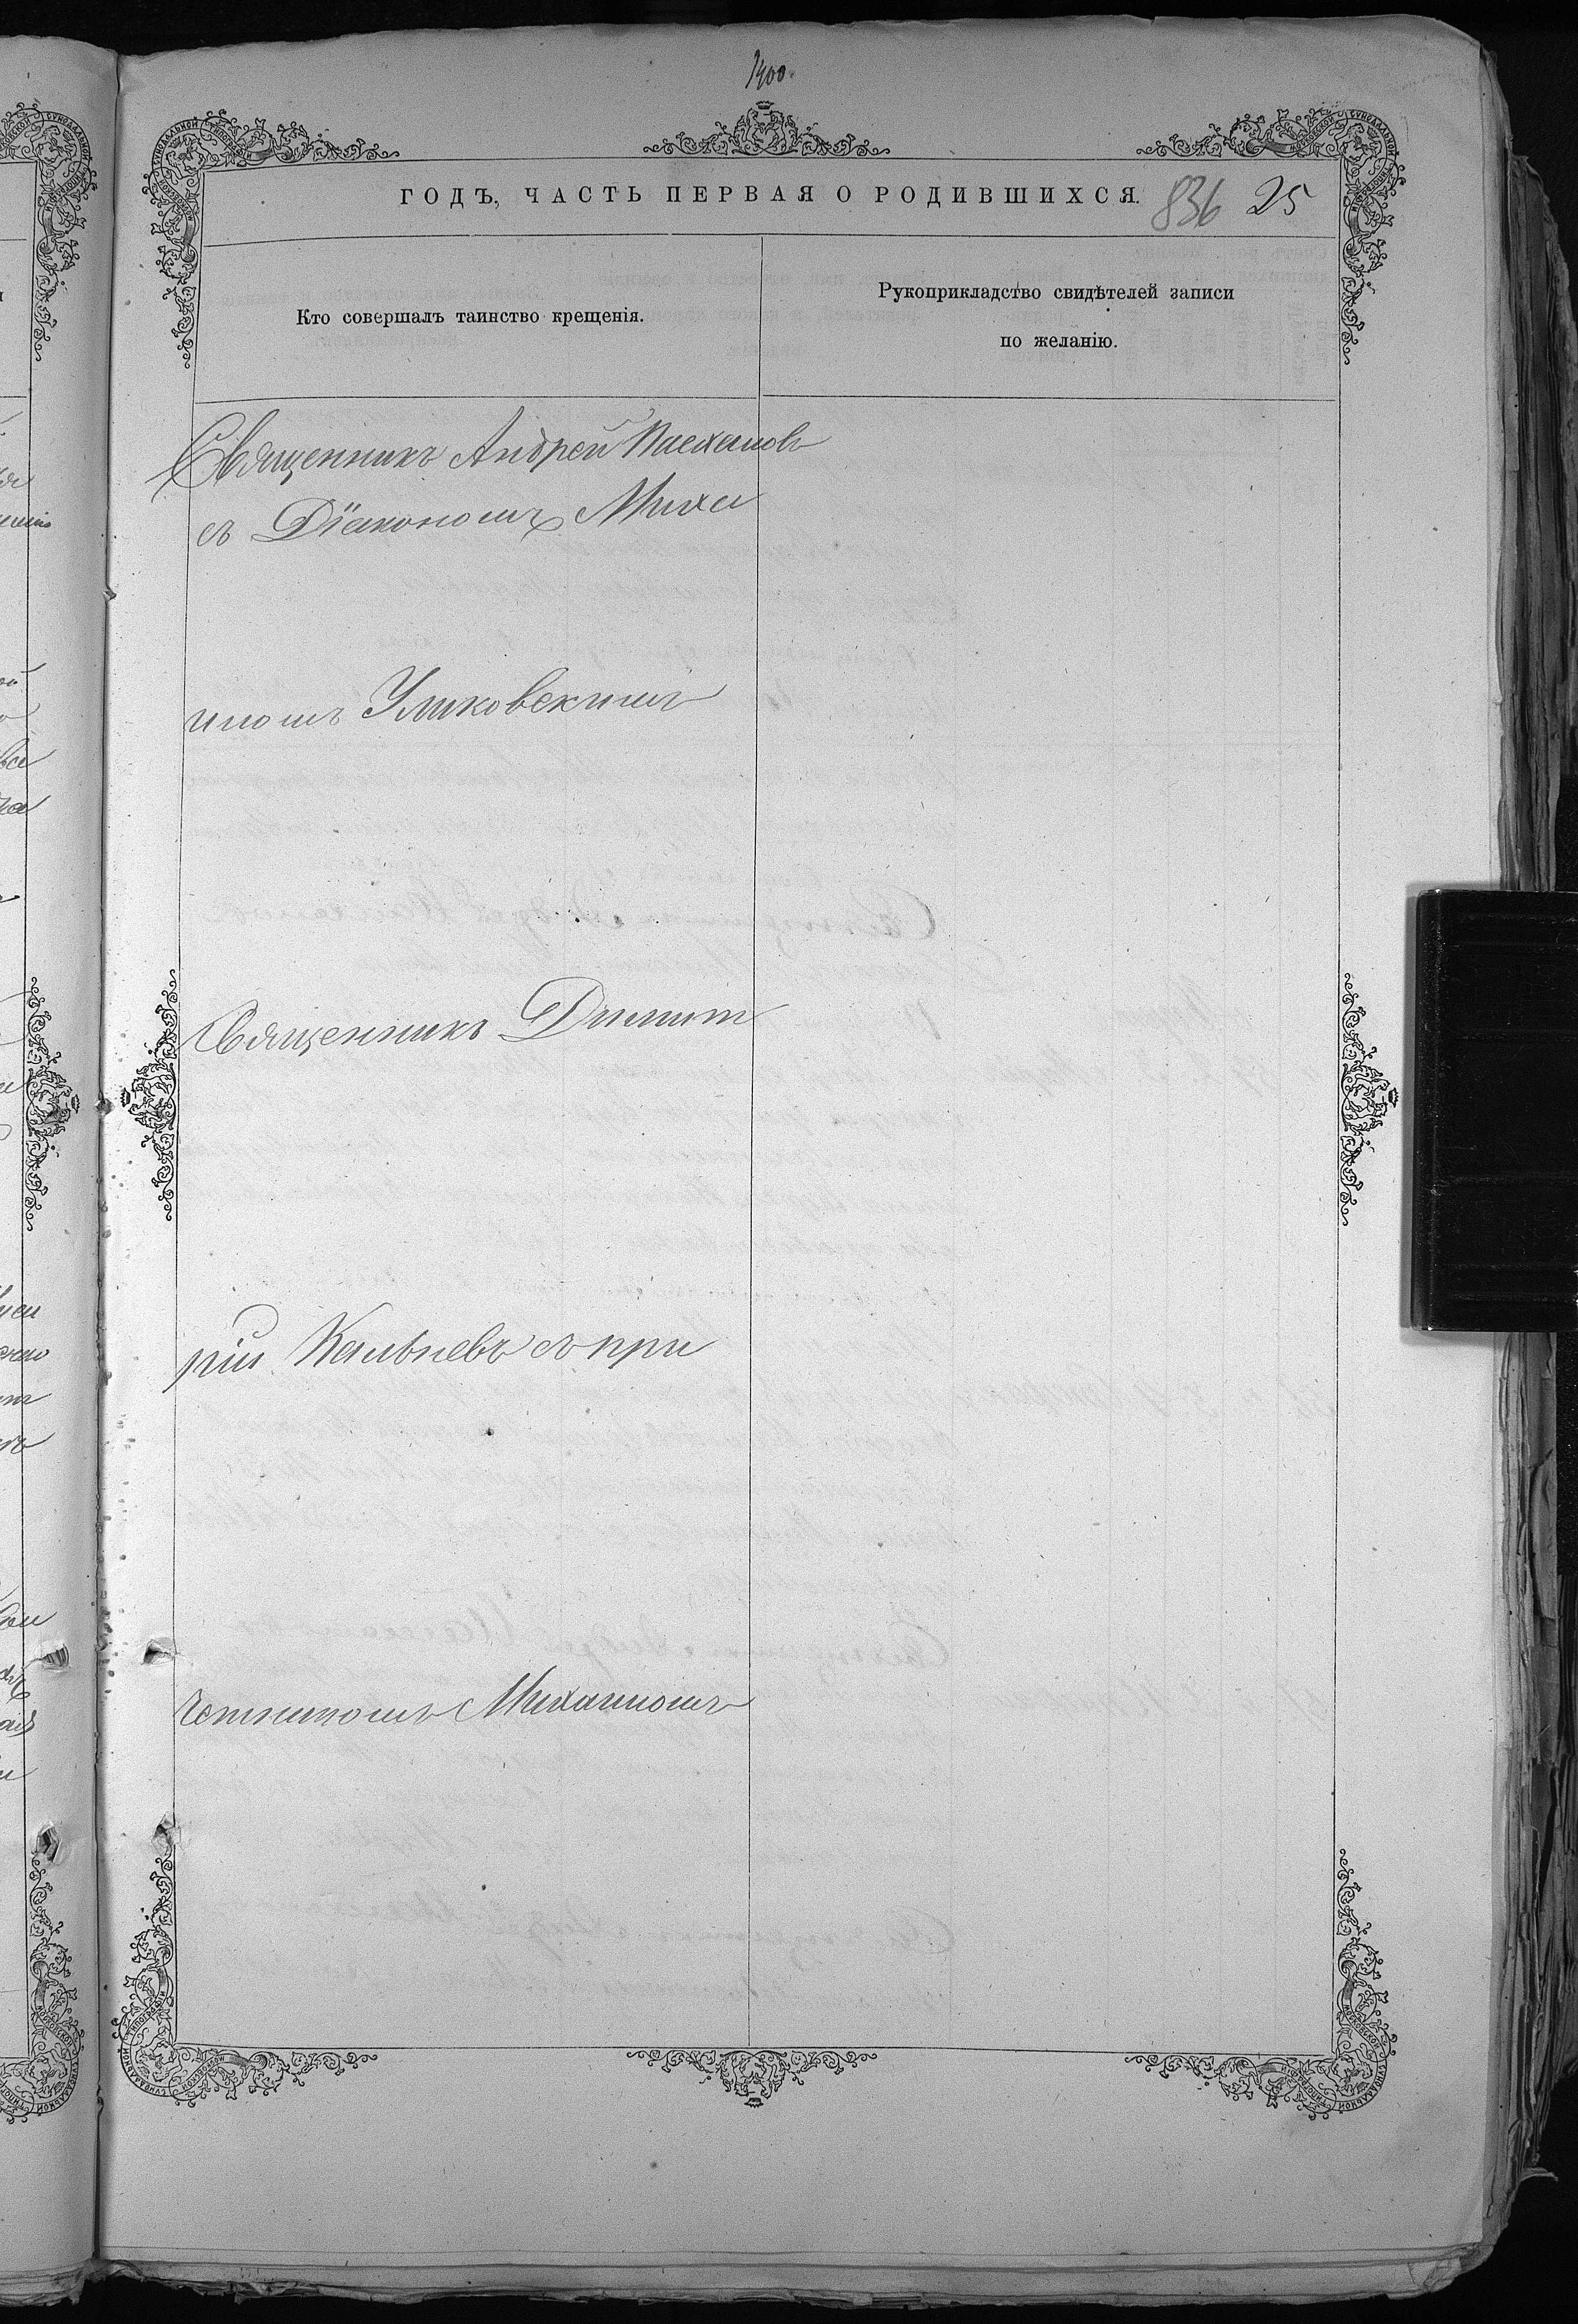 1900.
ГОДЪ, ЧАСТЬ ПЕРВАЯ О РОДИВШИХСЯ.
836 25
Кто совершалъ таинство крещенія.
Рукоприкладство свидѣтелей записи
по желанію.
Священникъ Андрей
съ Діакономъ Михаи
иломъ
Священникъ Димит
рій съ при
четникомъ Михаиломъ